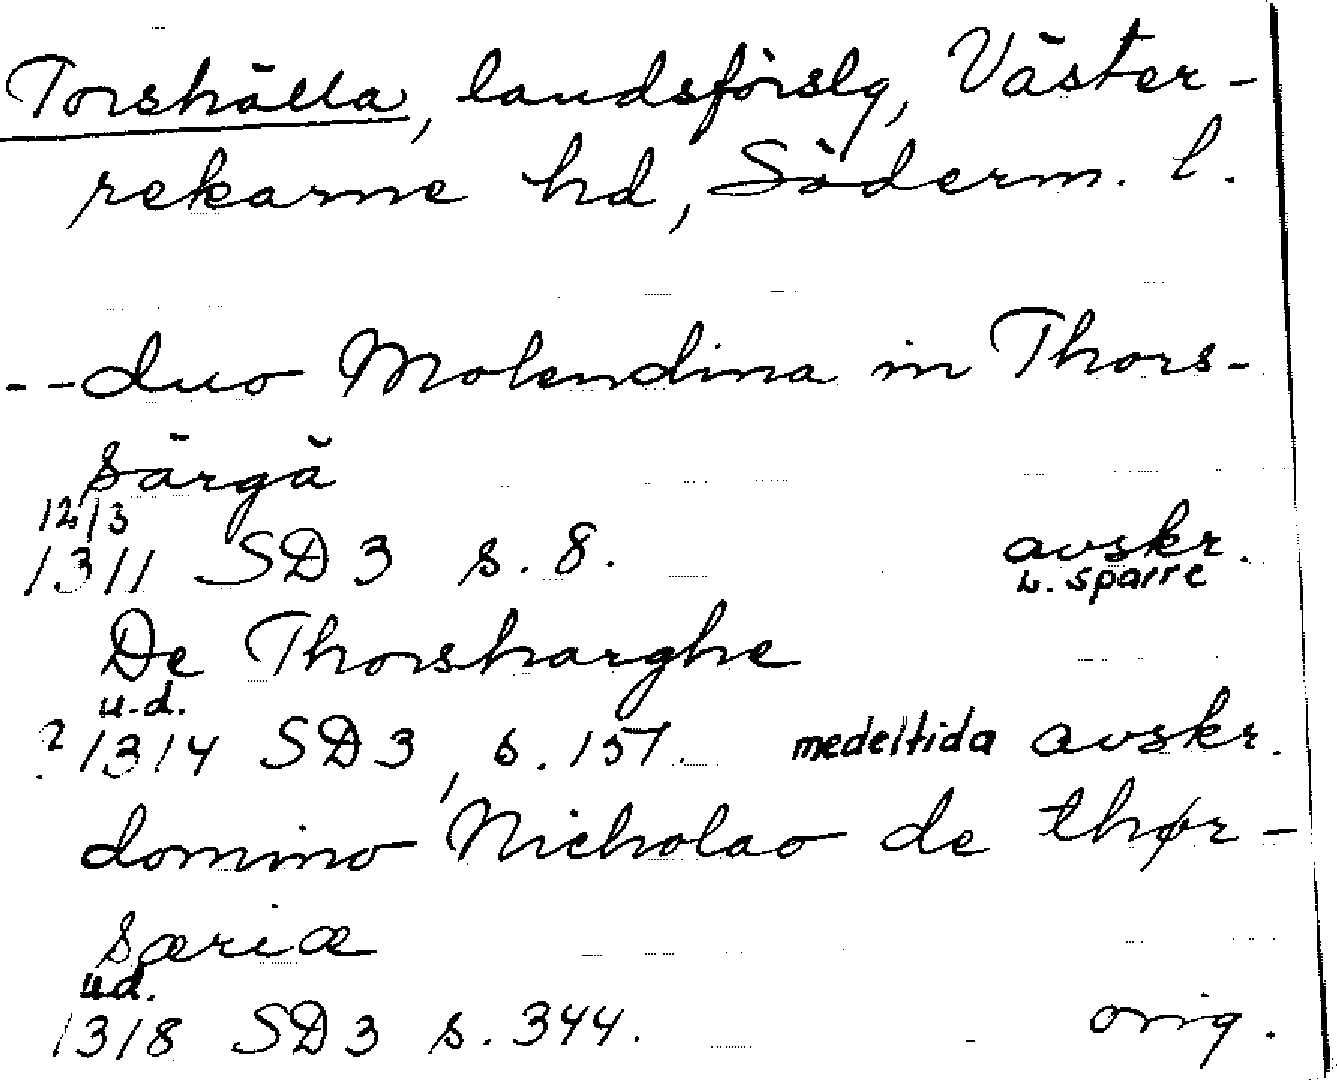 Torshälla, landsförslg, Väster-
rekarne hd, Söderm. l.
--duo Molendina in Thors-
särgä
12/3
1311 SD 3 s. 8. avskr.
L. Sparre
De Thorsharghe
u.d.
? 1314 SD 3, s. 157. medeltida avskr.
domino Nicholao de thør-
særiæ
u.d.
1318 SD 3 s. 344. orig.